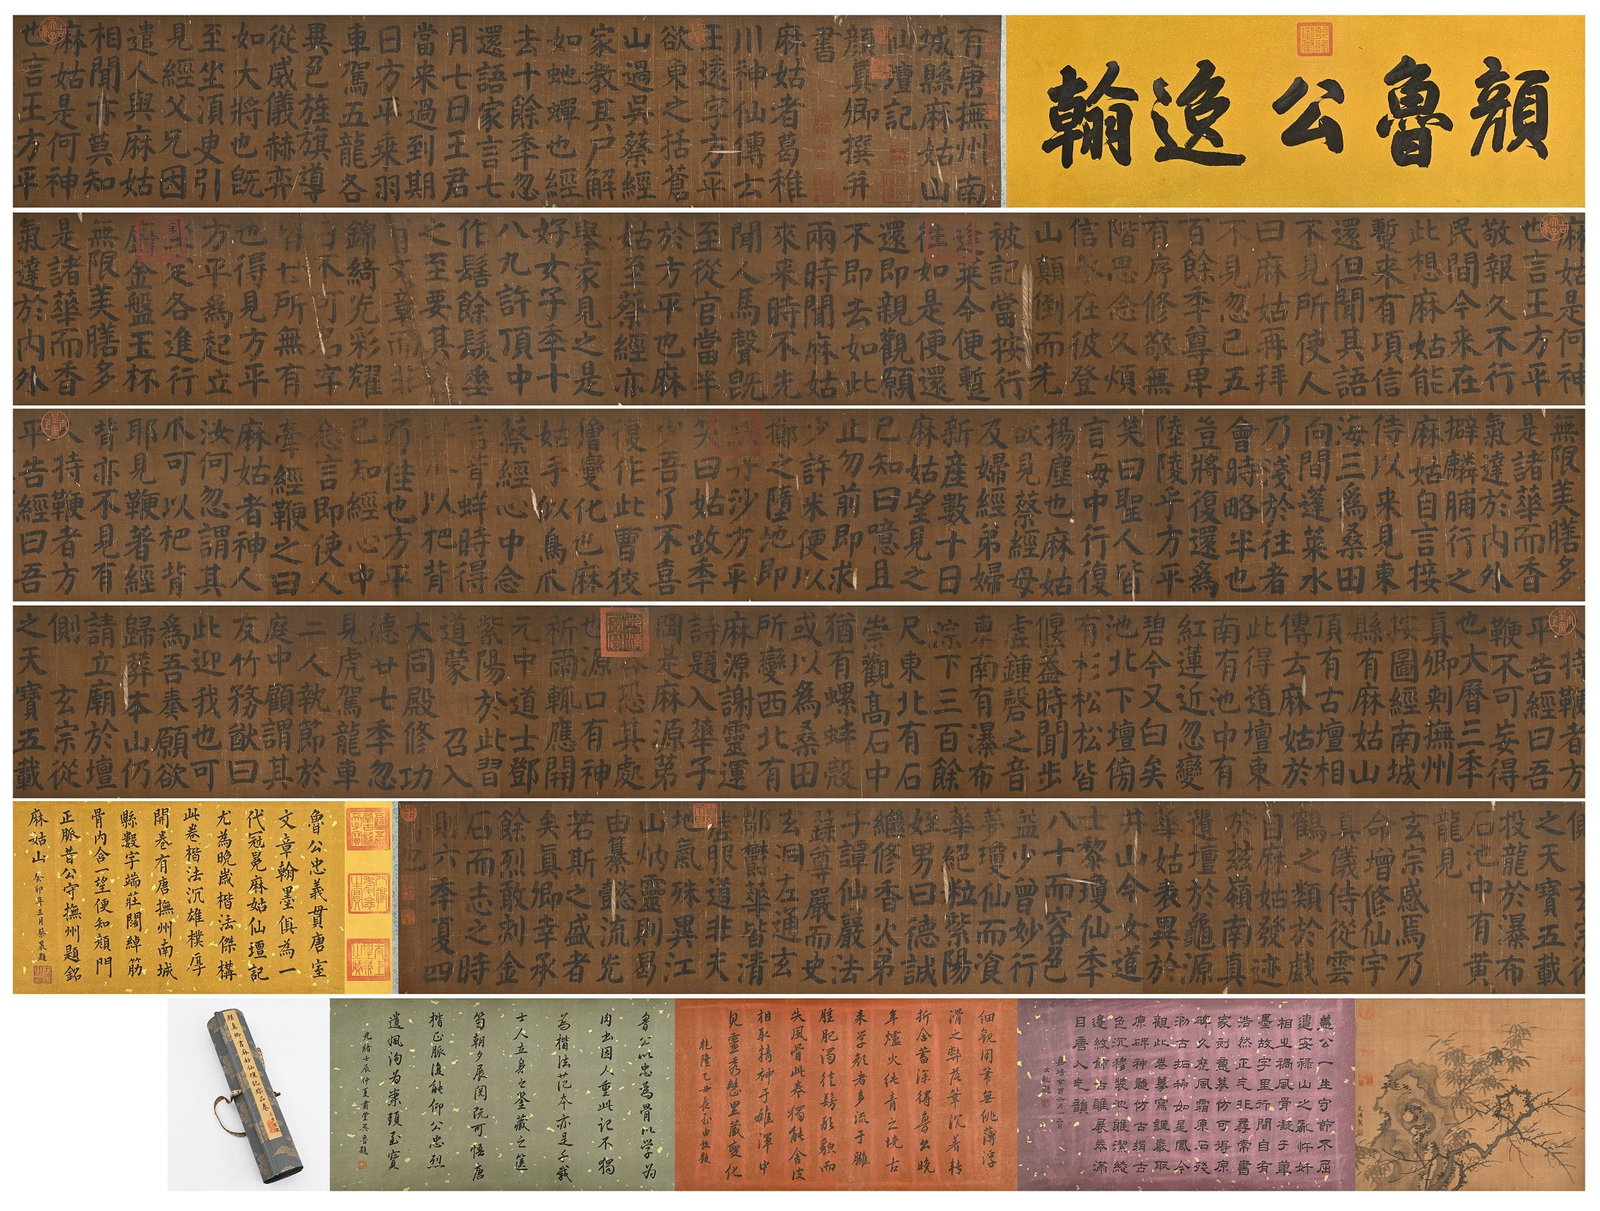 顏魯公逸翰
有唐撫州南
城縣麻姑山
仙壇記
顏真卿撰并
書
麻姑者葛稚
川神仙傳云
王遠字方平
欲東之括蒼
山過吳蔡經
家教其尸解
如虵蟬也經
去十餘年忽
還語家言七
月七日王君
當来過到期
日方平乘羽
車駕五龍各
異色旌旗導
從威儀赫弈
如大將也既
至坐湏臾引
見經父兄因
遣人與麻姑
相聞亦莫知
麻姑是何神
也言王方平
麻姑是何神
也言王方平
敬報久不行
民間今来在
此想麻姑能
蹔来有頃信
還但聞其語
不見所使人
曰麻姑再拜
不見忽已五
百餘年尊卑
有序修敬無
階思念久煩
信承在彼登
山顛倒而先
被記當按行
蓬萊今便蹔
往如是便還
還即親觀願
不即去如此
兩時聞麻姑
来来時不先
聞人馬聲既
至從官當半
於方平也麻
姑至蔡經亦
舉家見之是
好女子年十
八九許頂中
作髻餘髮垂
之至要其衣
有文章而非
錦綺光彩耀
日不可名字
皆世所無有
也得見方平
方平為起立
坐定各進行
廚金盤玉杯
無限美膳多
是諸華而香
氣達於內外
無限美膳多
是諸華而香
氣達於內外
擗麟脯行之
麻姑自言接
侍以来見東
海三為桑田
向間蓬萊水
乃淺於往者
會時略半也
豈將復還為
陸陵乎方平
笑曰聖人皆
言海中行復
揚塵也麻姑
欲見蔡經母
及婦經弟婦
新產數十日
麻姑望見之
已知曰噫且
止勿前即求
少許米便以
擲之墮地即
丹沙方平
笑曰姑故年
少吾了不喜
復作此曹狡
獪變化也麻
姑手似鳥爪
蔡經心中念
言背蛘時得
以杷背
乃佳也方平
已知經心中
念言即使人
牽經鞭之曰
麻姑者神人
汝何忽謂其
爪可以杷背
耶見鞭著經
背亦不見有
人持鞭者方
平告經曰吾
人持鞭者方
平告經曰吾
鞭不可妄得
也大曆三年
真卿刺撫州
按圖經南城
縣有麻姑山
頂有古壇相
傳云麻姑於
此得道壇東
南有池中有
紅蓮近忽變
碧今又白矣
池北下壇傍
有杉松松皆
偃蓋時聞步
虛鍾磬之音
東南有瀑布
淙下三百餘
尺東北有石
崇觀高石中
猶有螺蚌殼
或以為桑田
所變西北有
麻源謝靈運
詩題入華子
崗是麻源第
恐其處
也源口有神
祈雨輒應開
元中道士鄧
紫陽於此習
道蒙 召入
大同殿修功
德廿七年忽
見虎駕龍車
二人執節於
庭中顧謂其
友竹務猷曰
此迎我也可
為吾奏願欲
歸葬本山仍
請立廟於壇
側 玄宗從
之天寶五載
側 玄宗從
之天寶五載
投龍於瀑布
石池中有黃
龍見
玄宗感焉乃
命增修仙宇
真儀侍從雲
鶴之類於戲
自麻姑發迹
於兹嶺南真
遺壇於龜源
華姑表異於
井山今女道
士黎瓊仙年
八十而容色
益少曾妙行
夢瓊仙而飡
華絕粒紫陽
姪男曰德誠
繼修香火弟
子譚仙巖法
籙尊嚴而史
玄洞左通玄
鄒鬱華皆清
虛服道非夫
地氣殊異江
山炳靈則曷
由纂懿流光
若斯之盛者
矣真卿幸承
餘烈敢刻金
石而志之時
則六年夏四
月也
魯公忠義貫唐室
文章翰墨俱為一
代冠冕麻姑仙壇記
尤為晚歲楷法傑構
此卷楷法沉雄樸厚
開卷有唐撫州南城
縣數字端莊闊綽筋
骨內含一望便知顏門
正脈昔公守撫州題銘
麻姑山 癸卯年三月蔡襄題
蓋公一生守節不屈
遭安祿山之亂忤奸
相坐禍風骨凝于筆
墨故字里行間自有
浩然正气非尋常書
家刻意摹仿可得原
碑久歷風霜原石殘
泐古拓稀如星鳳今
觀此卷摹寫謹嚴取
原碑神髓仿古絹古
色沉穆裝池雅潔綾
邊紋飾古雅展卷滿
目唐人气韻
細觀用筆無佻薄浮
滑之弊落筆沉著转
折含蓄深得魯公晚
年爐火純青之境古
来学颜者多流于臃
腫肥濁徒具形貌而
失風骨此卷獨能舍皮
相取精神于雄渾中
見靈秀整里藏變化
乾隆乙丑長至由敦題
魯公以忠為骨以学為
内出因人重此記不獨
為楷法范本亦是千载
士人立身之鉴藏之箧
笥朝夕展阅既可悟唐
楷正脈復能仰公忠烈
遺風洵为案頭至寶
光緒壬辰仲夏